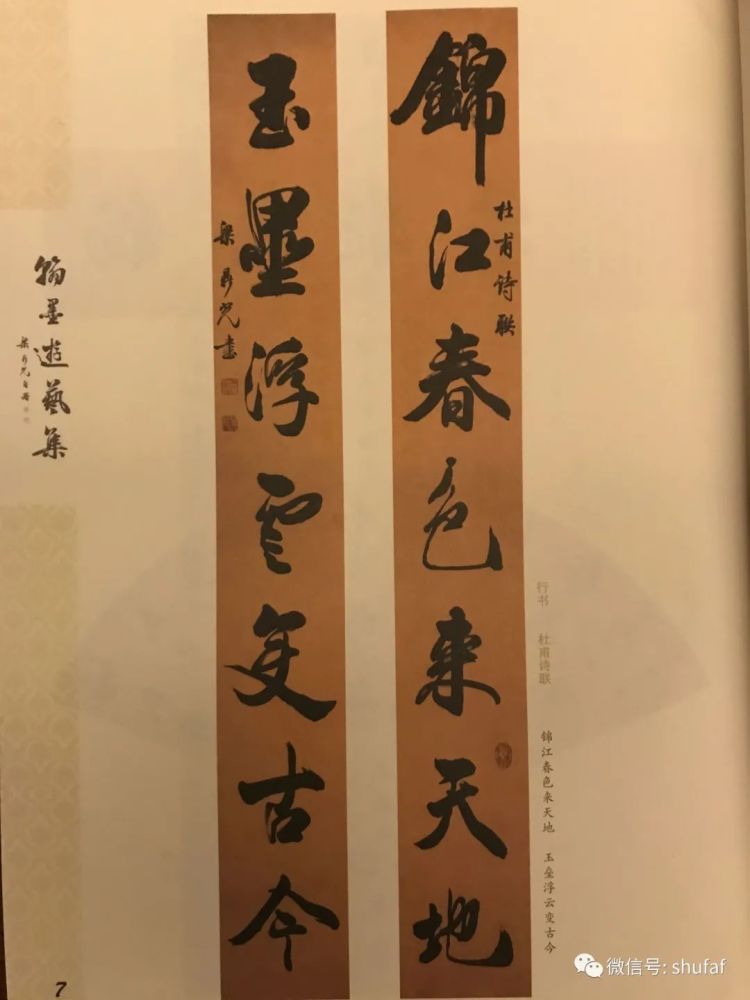 錦江春色来天地
杜甫诗联
玉壘浮雲变古今
梁鼎光書
行书 杜甫诗联
錦江春色来天地 玉垒浮云变古今
翰墨遊藝集
梁鼎光自署
7
微信号: shufaf